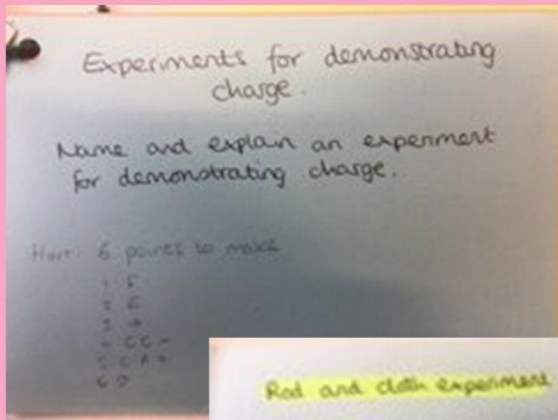 Experiments for demonstrating
charge.
Name and explain an experiment
for demonstrating charge.
Hint: 6 points to make
1
2
3
6
Rod and cloth experiment